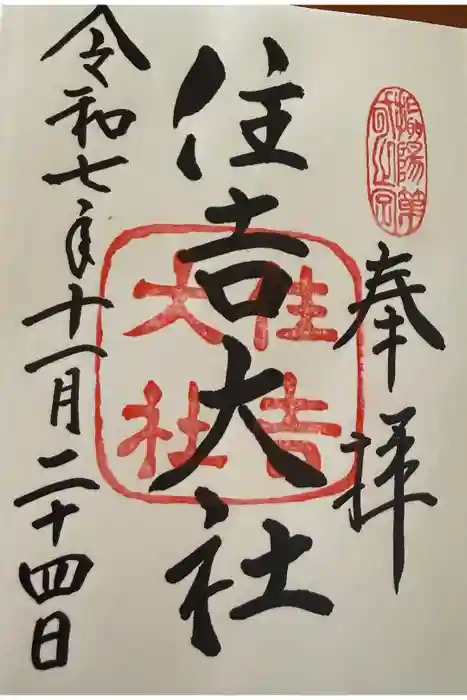 奉拝
摂陽第一之宮
住吉大社
住吉大社
令和七年十一月二十四日